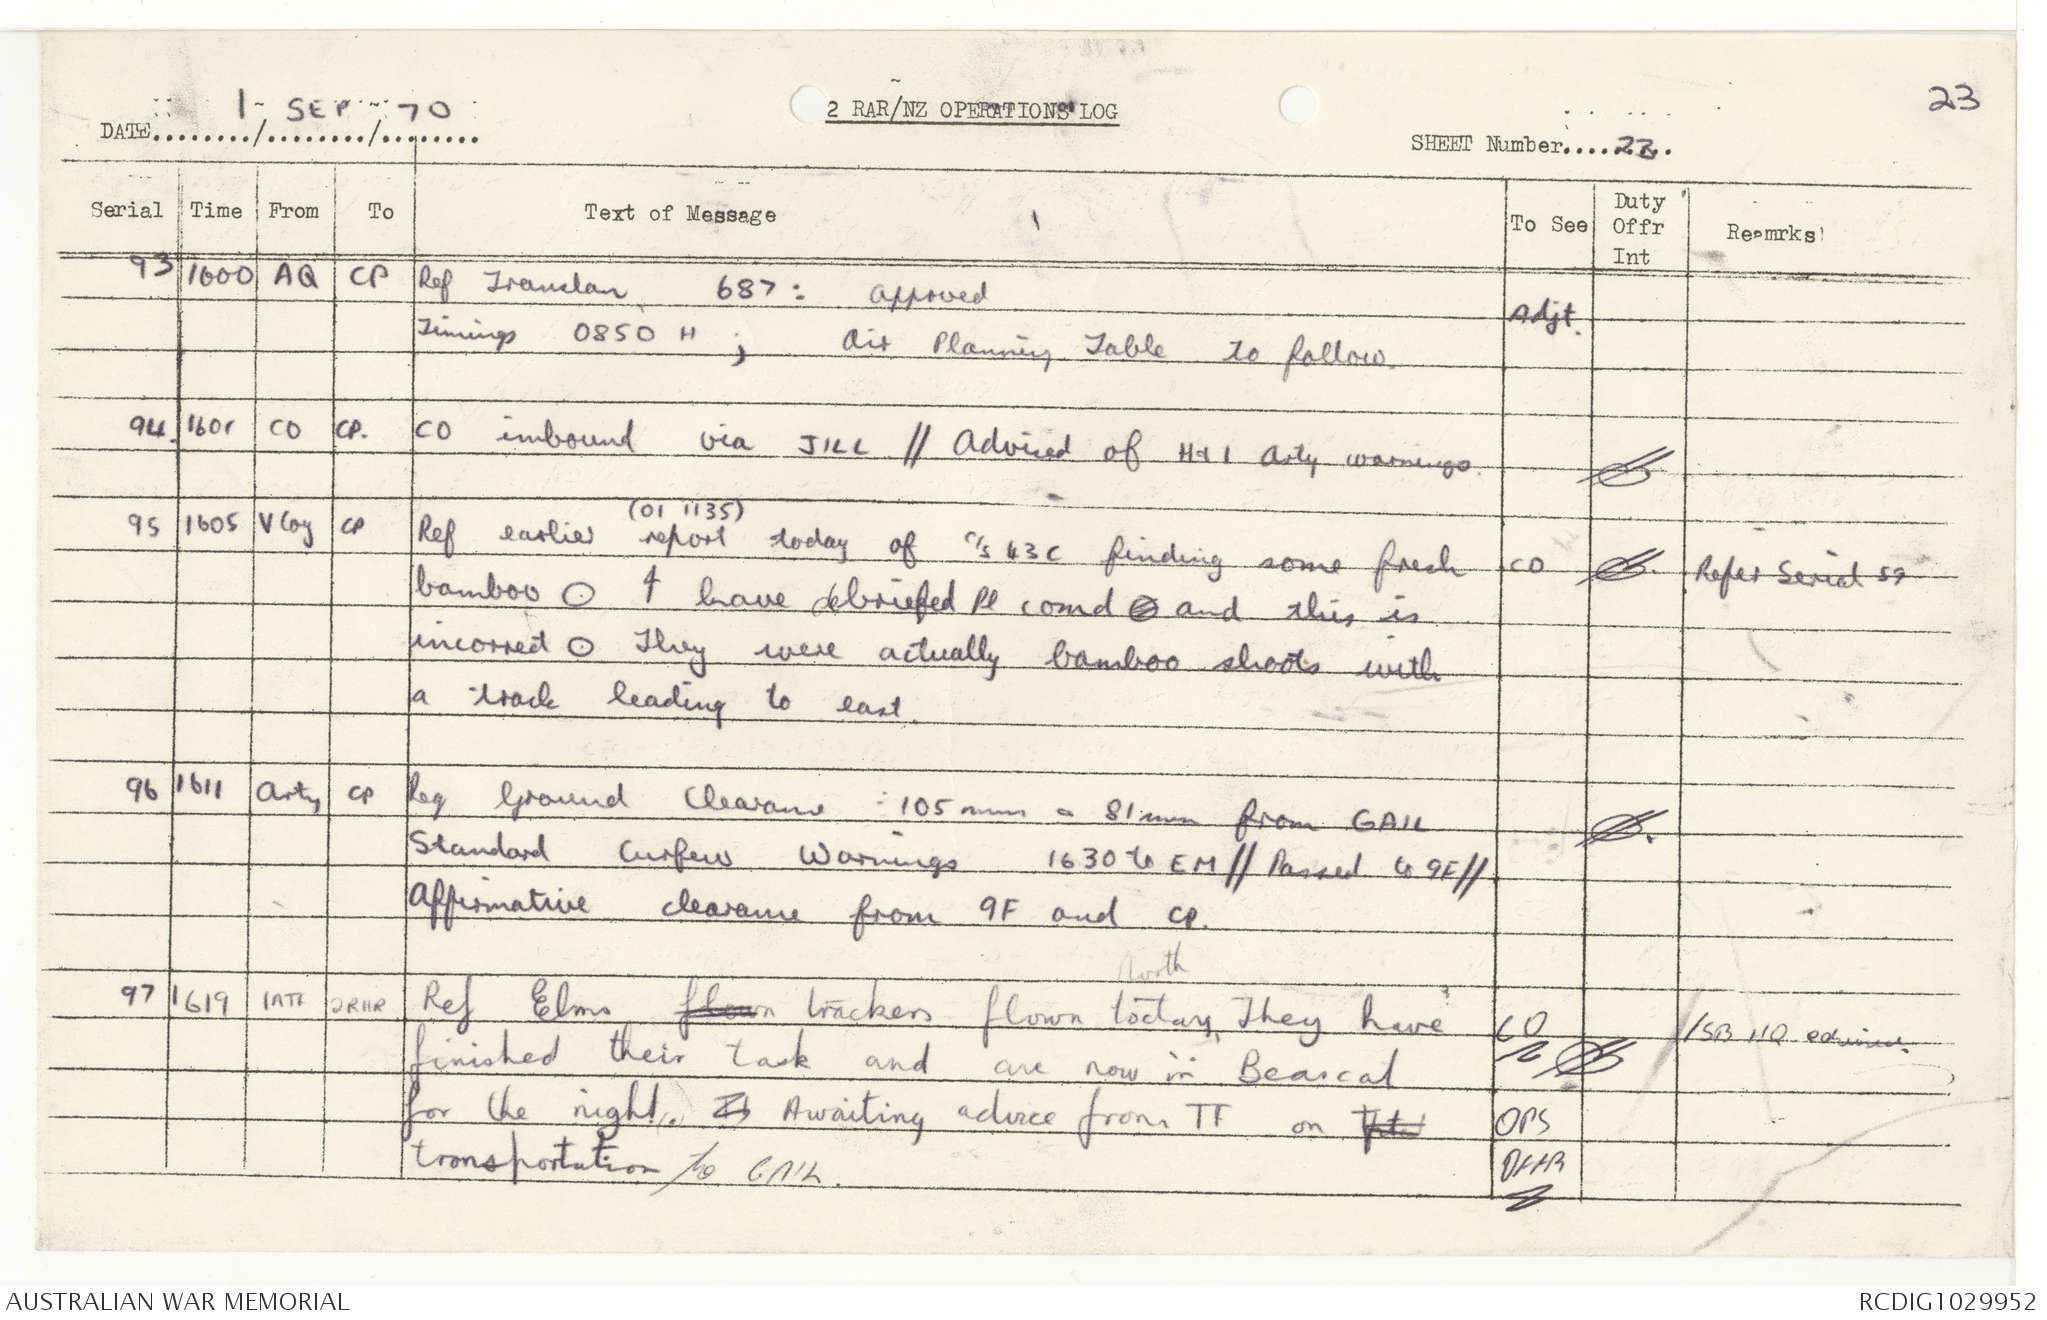 23
DATE 1 / SEP / 70
2 RAR/NZ OPERATIONS LOG
SHEET Number.....22..
Serial Time From To Text of Message To See Duty Offr Int Reamrks
93 1600 AQ CP Ref Translan 687: approved
Adjt.
Timings 0850 H ; Air Planning Table to follow.
94. 1601 CO CP. CO imbound via JILL // Advised of H&I Arty warnings.
(01 1135)
95 1605 V Coy CP Ref earlier report today of c/s 43C finding some fresh CO Refer Serial 59
bamboo O I have debriefed Pl comd and this is
incorrect O They were actually bamboo shoots with
a track leading to east.
96 1611 Arty CP Req Ground Clearance : 105 mm - 81mm from GAIL
Standard Curfew Warnings 1630 to EM // Passed to 9F //
Affirmative clearance from 9F and CP.
North
97 1619 1ATF 2RAR Ref Elms flown trackers flown today, They have CO
finished their task and are now in Bearcat
for the night. Awaiting advice from TF on OPS
transportation to GAIL. OFFR
AUSTRALIAN WAR MEMORIAL
RCDIG1029952